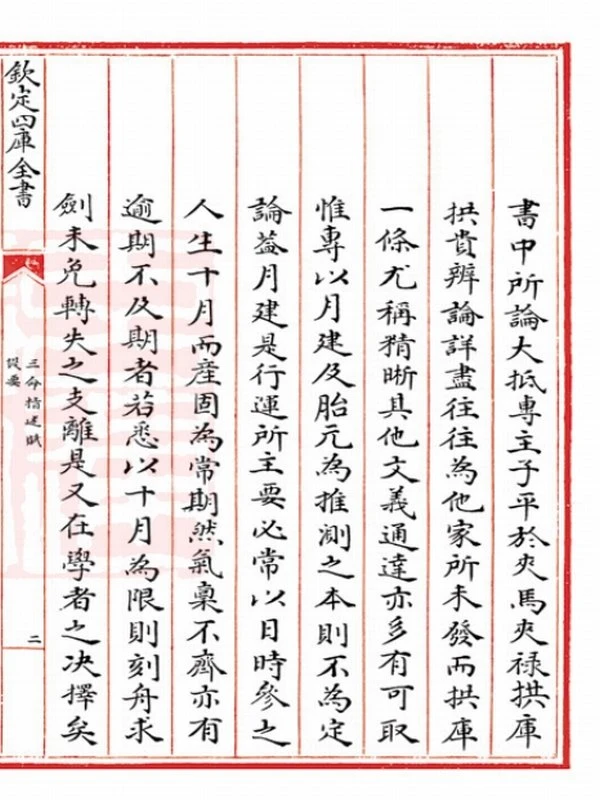 書中所論大抵專主子平於夾馬夾祿拱庫
拱貴辨論詳盡往往為他家所未發而拱庫
一條尤稱精晰其他文義通達亦多有可取
惟專以月建及胎元為推測之本則不為定
論蓋月建是行運所主要必常以日時參之
人生十月而產固為常期然氣稟不齊亦有
逾期不及期者若悉以十月為限則刻舟求
劍未免轉失之支離是又在學者之决擇矣
欽定四庫全書
三命指迷賦
提要
二